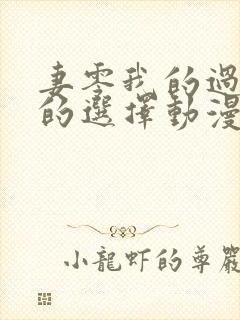 妻零我的過
的選擇動漫
小龍虾的尊嚴